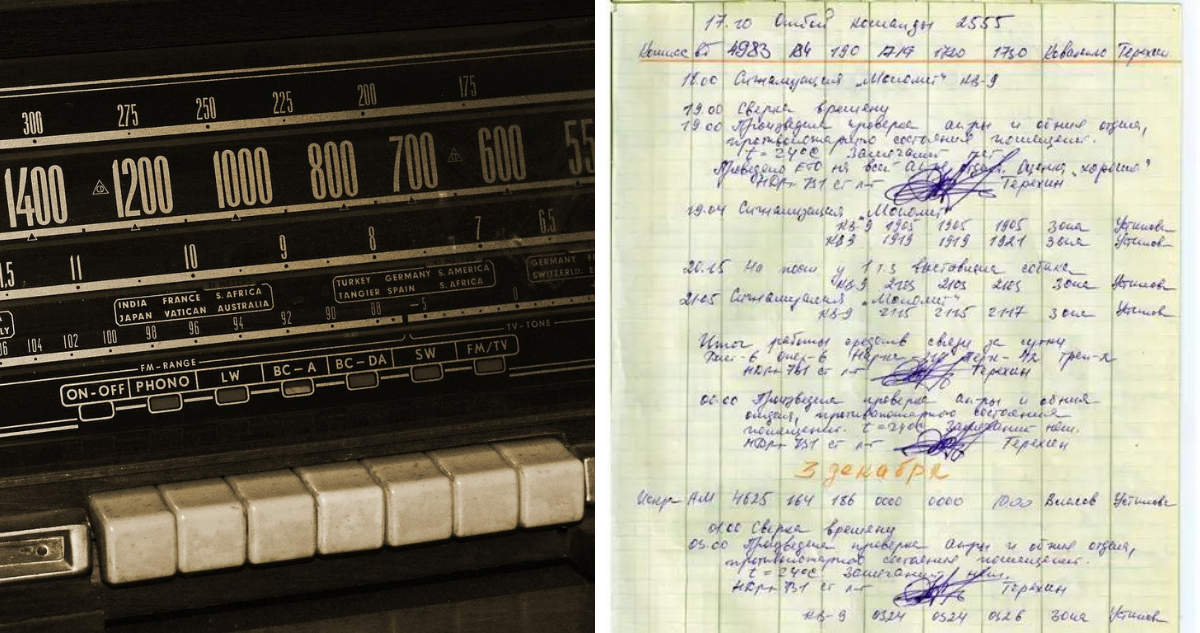 300 275 250 225 200 175
1400 1200 1000 800 700 600 55
11 10 9 8 7 6.5
INDIA FRANCE S.AFRICA
JAPAN VATICAN AUSTRALIA
TURKEY GERMANY S.AMERICA
TANGIER SPAIN S.AFRICA
GERMANY
104 102 100 98 96 94 92 90 88 5 0
FM-RANGE
TV-TONE
ON-OFF PHONO LW BC-A BC-DA SW FM/TV
17.20 Отбой команды 2555
4983 184 190 1719 1720 1730 Коваленко Терехин
18.00 Сигнализация "Монолит" КВ-9
19.00 Сверка времени
19.00 Произведена проверка ап-ры и обния отдел,
противопожарного состояния помещений.
t = 24°С Замечаний нет
Проведено ЕТО на всей ап-ре отдел. Оценка "хорошо"
НДР-731 ст л-т Терехин
19.04 Сигнализация "Монолит"
КВ-9 1905 1905 1905 Зона Устинов
КВ9 1919 1919 1921 Зона Устинов
20.15 На пост у
КВ-9 2103 2103 2103 Зона Устинов
21.05 Сигнализация "Монолит"
КВ-9 2115 2115 2117 Зона Устинов
Итог работы средств связи за сутки
НДР-731 ст л-т Терехин
00.00 Произведена проверка ап-ры и обния
отдела, противопожарного состояния
помещений. t = 24°С замечаний нет.
НДР-731 ст л-т Терехин
3 декабря
Искра АМ 4625 164 186 0000 0000 Власов Устинов
01.00 Сверка времени
03.00 Произведена проверка ап-ры и обния отдел,
противопожарного состояния помещений.
t = 24°С Замечаний нет.
НДР-731 ст л-т Терехин
КВ-9 0324 0324 0326 Зона Устинов